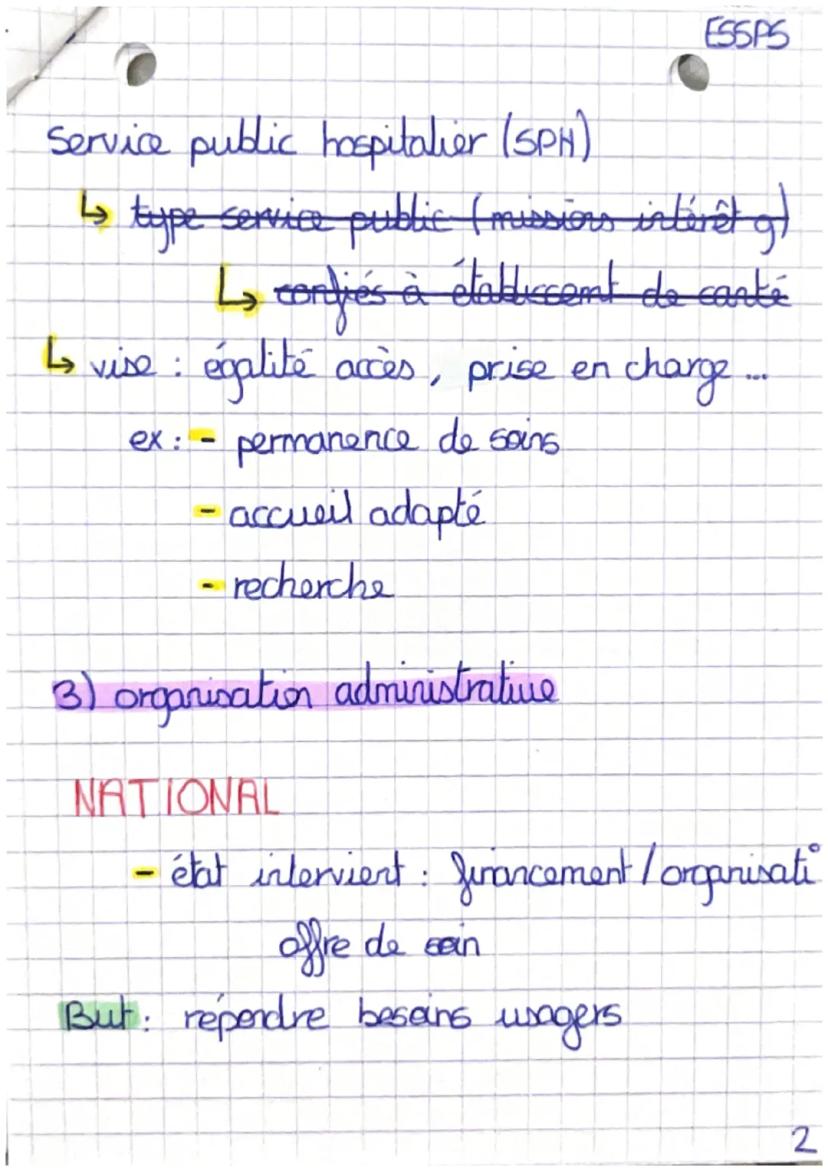 ESSPS
Service public hospitalier (SPH)
↳ ~~type service public (missions intérêt g)~~
↳ ~~confiés à établissemt de santé~~
↳ vise : égalité accès, prise en charge ...
ex : - permanence de soins
- accueil adapté
- recherche
3) organisation administrative
NATIONAL
- état intervient : financement / organisat°
offre de soin
But : répondre besoins usagers
2